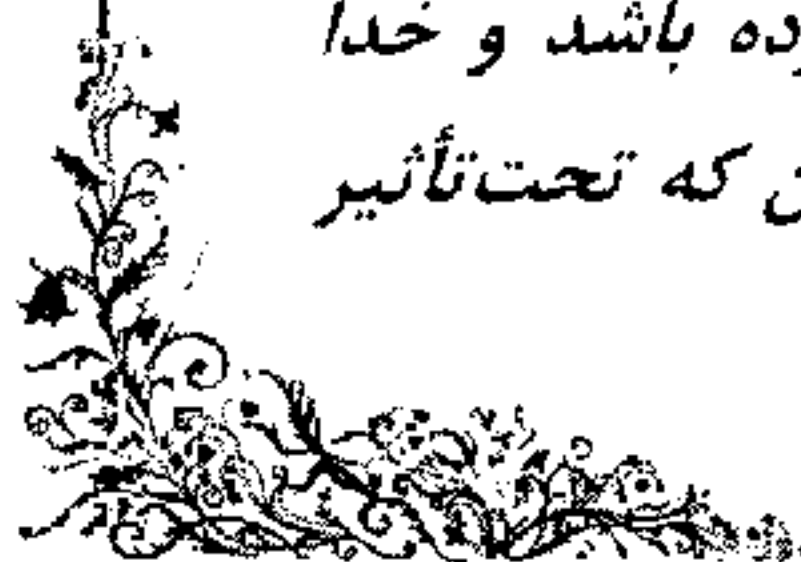 باشد و خدا
که تحت‌تأثیر